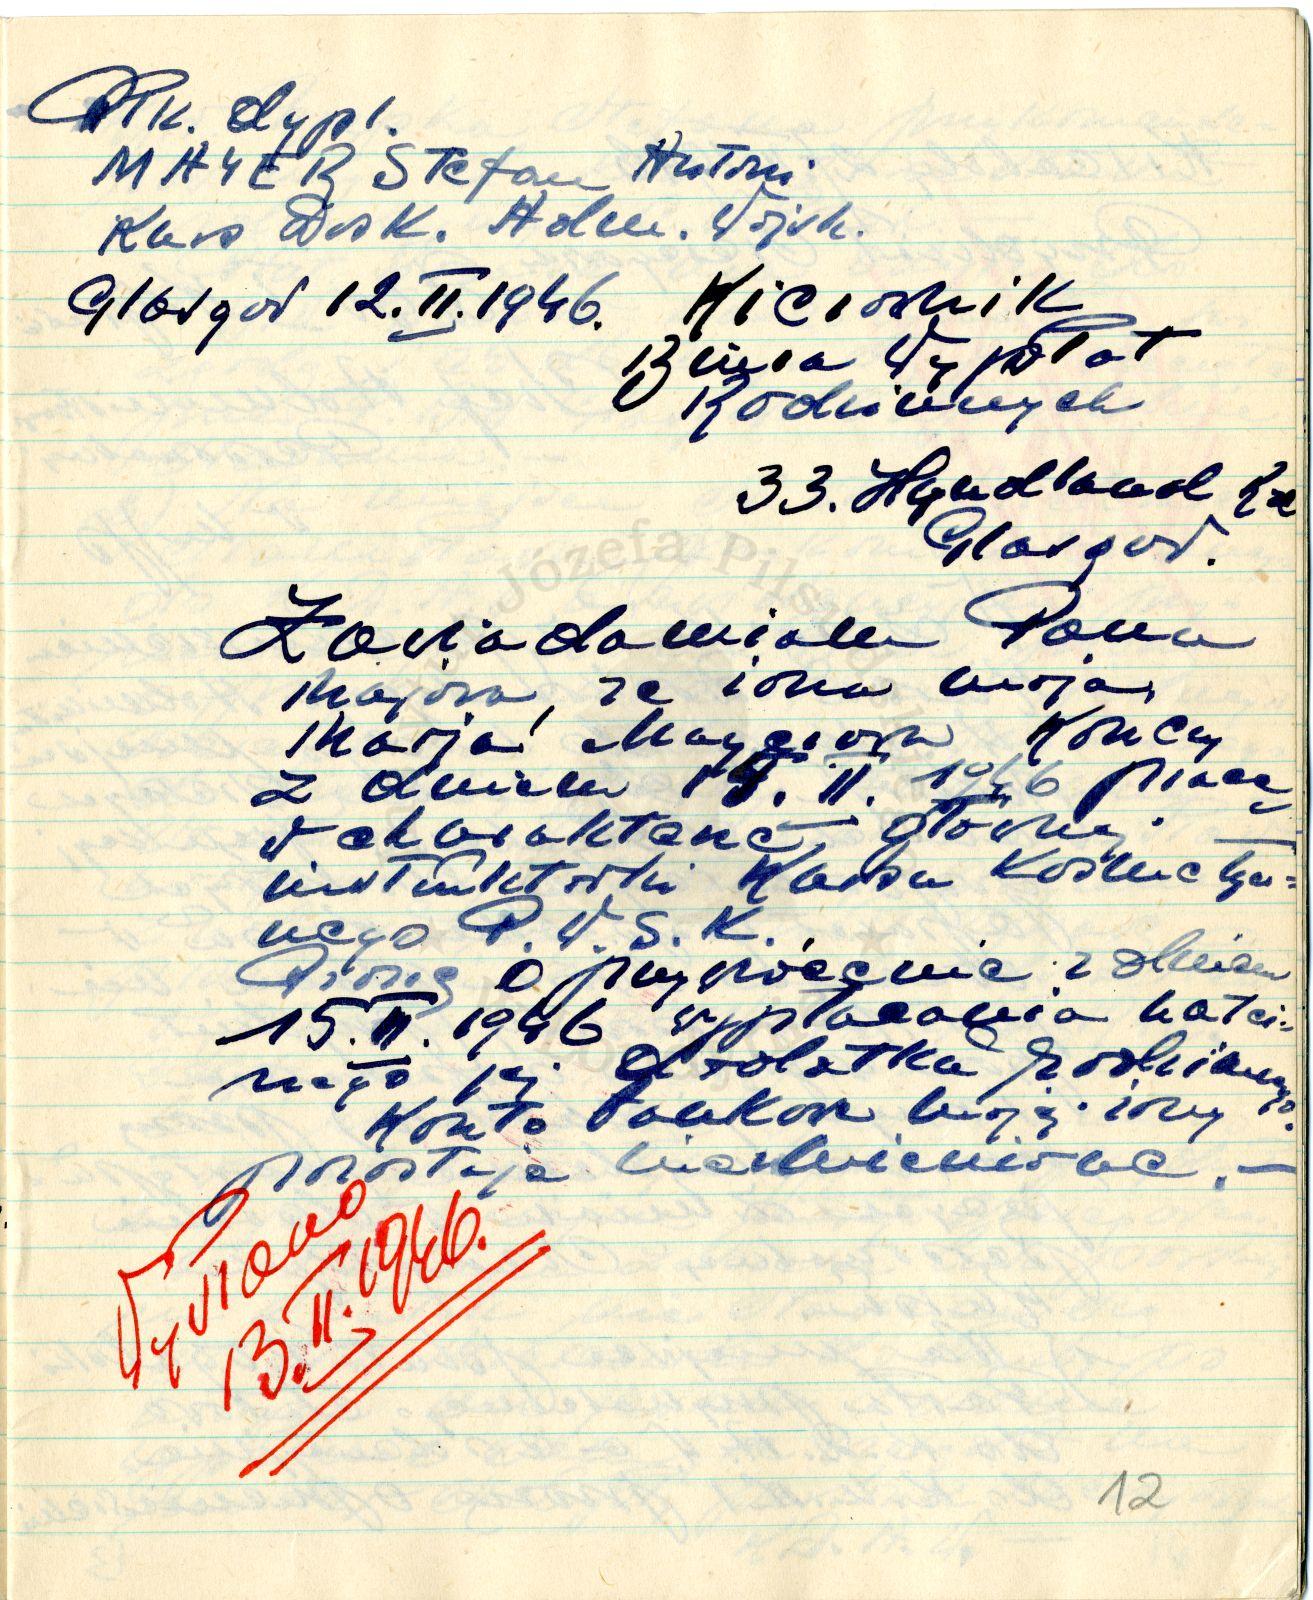 Płk. dypl.
MAYER Stefan Antoni
Kurs Dosk. Adm. Wojsk.
Glasgow 12.II.1946.
Kierownik
Biura Wypłat
Rodzinnych
33. Hyndland Rd
Glasgow.
Zawiadamiam Pana
Majora, że żona moja,
Marja Mayerowa kończy
z dniem 14.II.1946 pracę
w charakterze głównej
instruktorki Kursu Kosmetycz-
nego P.W.S.K.
Proszę o przywrócenie z dniem
15.II.1946 wypłacania należ-
nego jej dodatku rodzinnego.
Konto bankowe mojej żony
pozostaje niezmienione.—
Wysłano
13.II.1946.
Józefa Pils
12